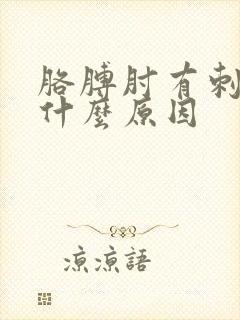 胳膊肘有刺
什麼原因
涼涼語